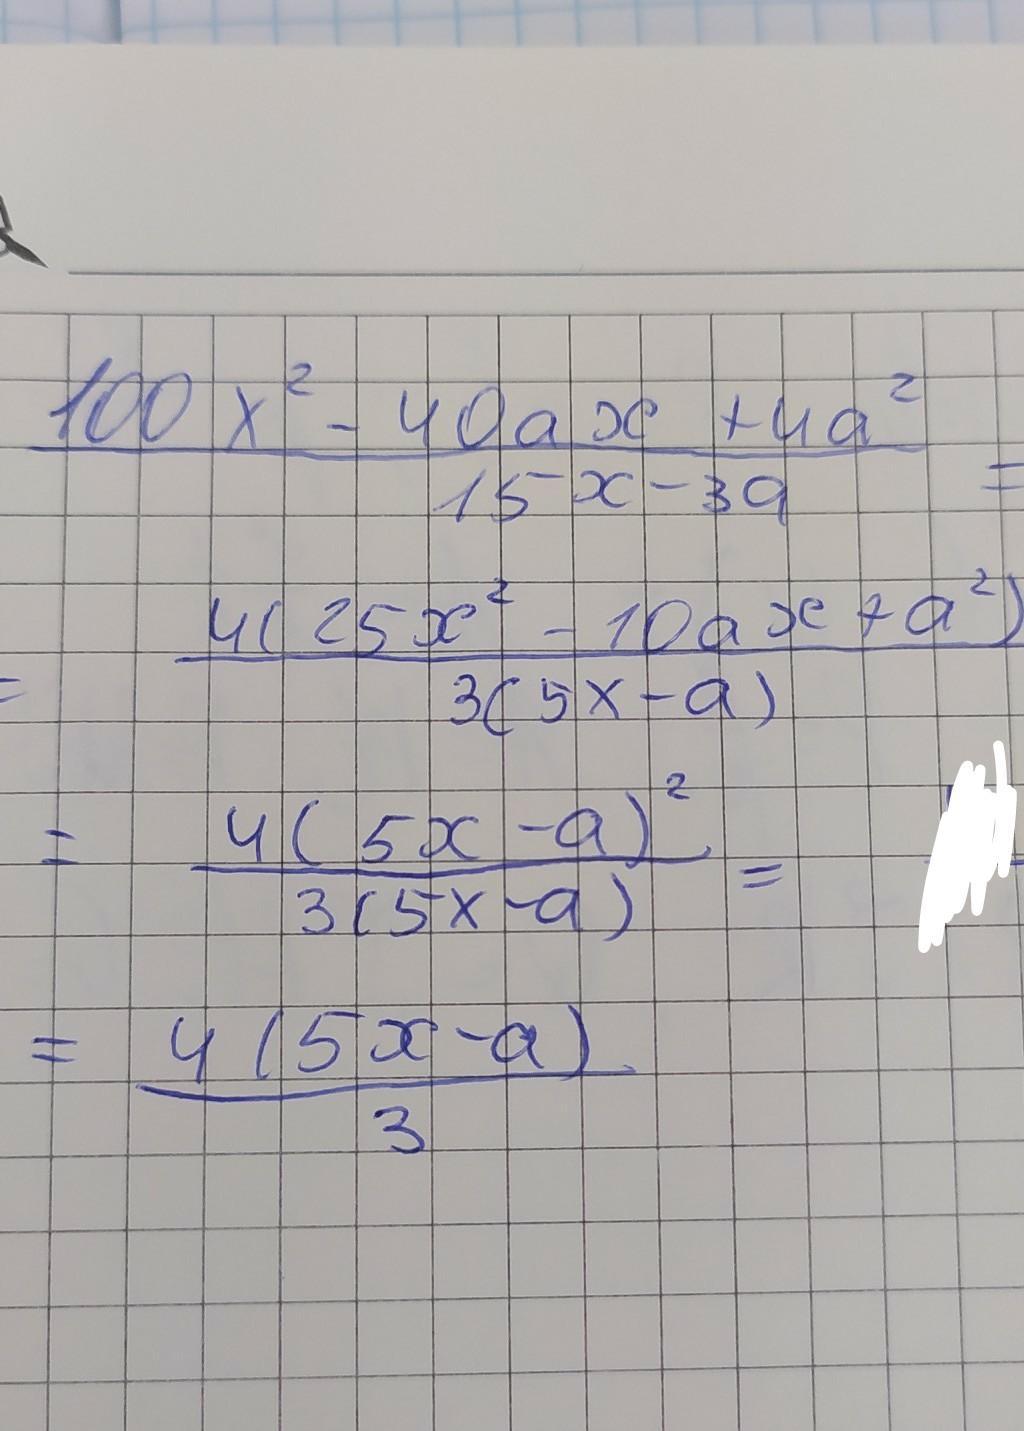 100x² - 40ax + 4a²
15x - 3a =
= 4(25x² - 10ax + a²)
3(5x - a)
= 4(5x - a)² =
3(5x - a)
= 4(5x - a)
3